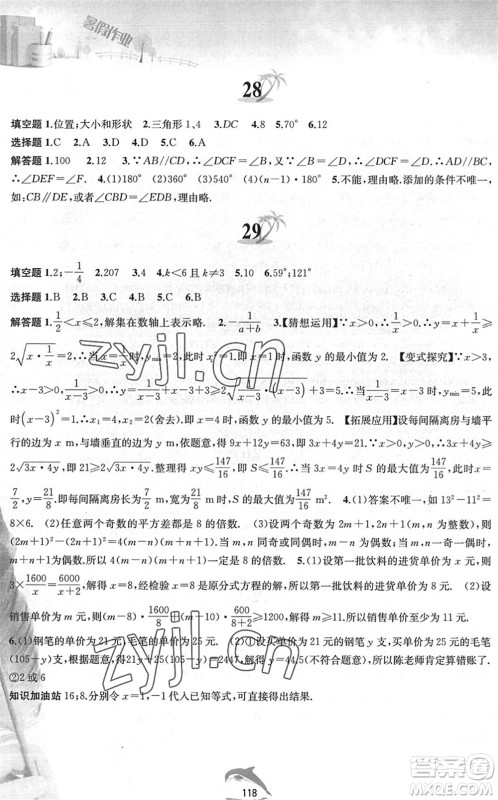 暑假作业
28
填空题 1.位置;大小和形状 2.三角形 1、4 3.DC 4.8 5.70° 6.12
选择题 1.C 2.A 3.D 4.D 5.C 6.A
解答题 1.100 2.12 3.∵AB//CD,∴∠DCF=∠B,又∵∠DCF=∠D,∴AD//BE,
∴∠DEF=∠F. 4.(1)180° (2)360° (3)540° (4)(n-1)·180° 5.不能,理由略.添加的条件不唯一,
如:CB∥DE,或者∠CBD=∠EDB,理由略.
29
填空题 1.2;-1/4 2.207 3.4 4.k<6且k≠3 5.10 6.59°;121°
选择题 1.B 2.B 3.C 4.A 5.D 6.B
解答题 1.1/2<x≤2,解集在数轴上表示略. 2.-1/(a+b) 3.【猜想运用】∵x>0,∴1/x>0,∴y=x+1/x≥
2√(x·1/x)=2,∴当x=1/x时,y_min=2,此时x²=1,只取x=1,即x=1时,函数y的最小值为2. 【变式探究】∵x>3,
∴x-3>0,1/(x-3)>0,∴y=1/(x-3)+x-3+3≥2√(1/(x-3)·(x-3))+3=5,∴当1/(x-3)=x-3时,y_min=5,此
时(x-3)²=1,∴x₁=4,x₂=2(舍去).即x=4时,函数y的最小值为5. 【拓展应用】设每间隔离房与墙平
行的边为x m,与墙垂直的边为y m,依题意,得9x+12y=63,即3x+4y=21.∵3x>0,4y>0,∴3x+4y≥
2√(3x·4y),即21≥2√(3x·4y).整理得xy≤147/16,即S≤147/16,∴当3x=4y时S_max=147/16,此时x=
7/2,y=21/8,即每间隔离房长为7/2 m,宽为21/8 m时,S的最大值为147/16 m². 4.(1)答案不唯一,如13²-11²=
8×6. (2)任意两个奇数的平方差是8的倍数. (3)设两个奇数为2m+1,2n+1(m,n为整数),则
(2m+1)²-(2n+1)²=4(m-n)(m+n+1).当m,n同奇或同偶时,m-n是偶数;当m,n一奇一偶时,
m+n+1是偶数,∴4(m-n)(m+n+1)一定是8的倍数. 5.(1)设第一批饮料的进货单价为x元,则
3×1600/x=6000/(x+2),解得x=8,经检验x=8是原分式方程的解,所以第一批饮料的进货单价为8元. (2)设
销售单价为m元,则(m-8)·1600/8+(m-10)·6000/(8+2)≥1200,解得m≥11,所以销售单价至少为11元.
6.(1)钢笔的单价为21元,毛笔的单价为25元. (2)①设买单价为21元的钢笔y支,买单价为25元的毛笔
(105-y)支.根据题意,得21y+25(105-y)=2447.解得y=44.5(不符合题意),所以陈老师肯定算错账了.
②2或6
知识加油站 16;8.分别令x=1,-1代入已知等式,可直接得出结果.
118
zyjl.cn
zyjl.cn
答案圈
MXQE.COM